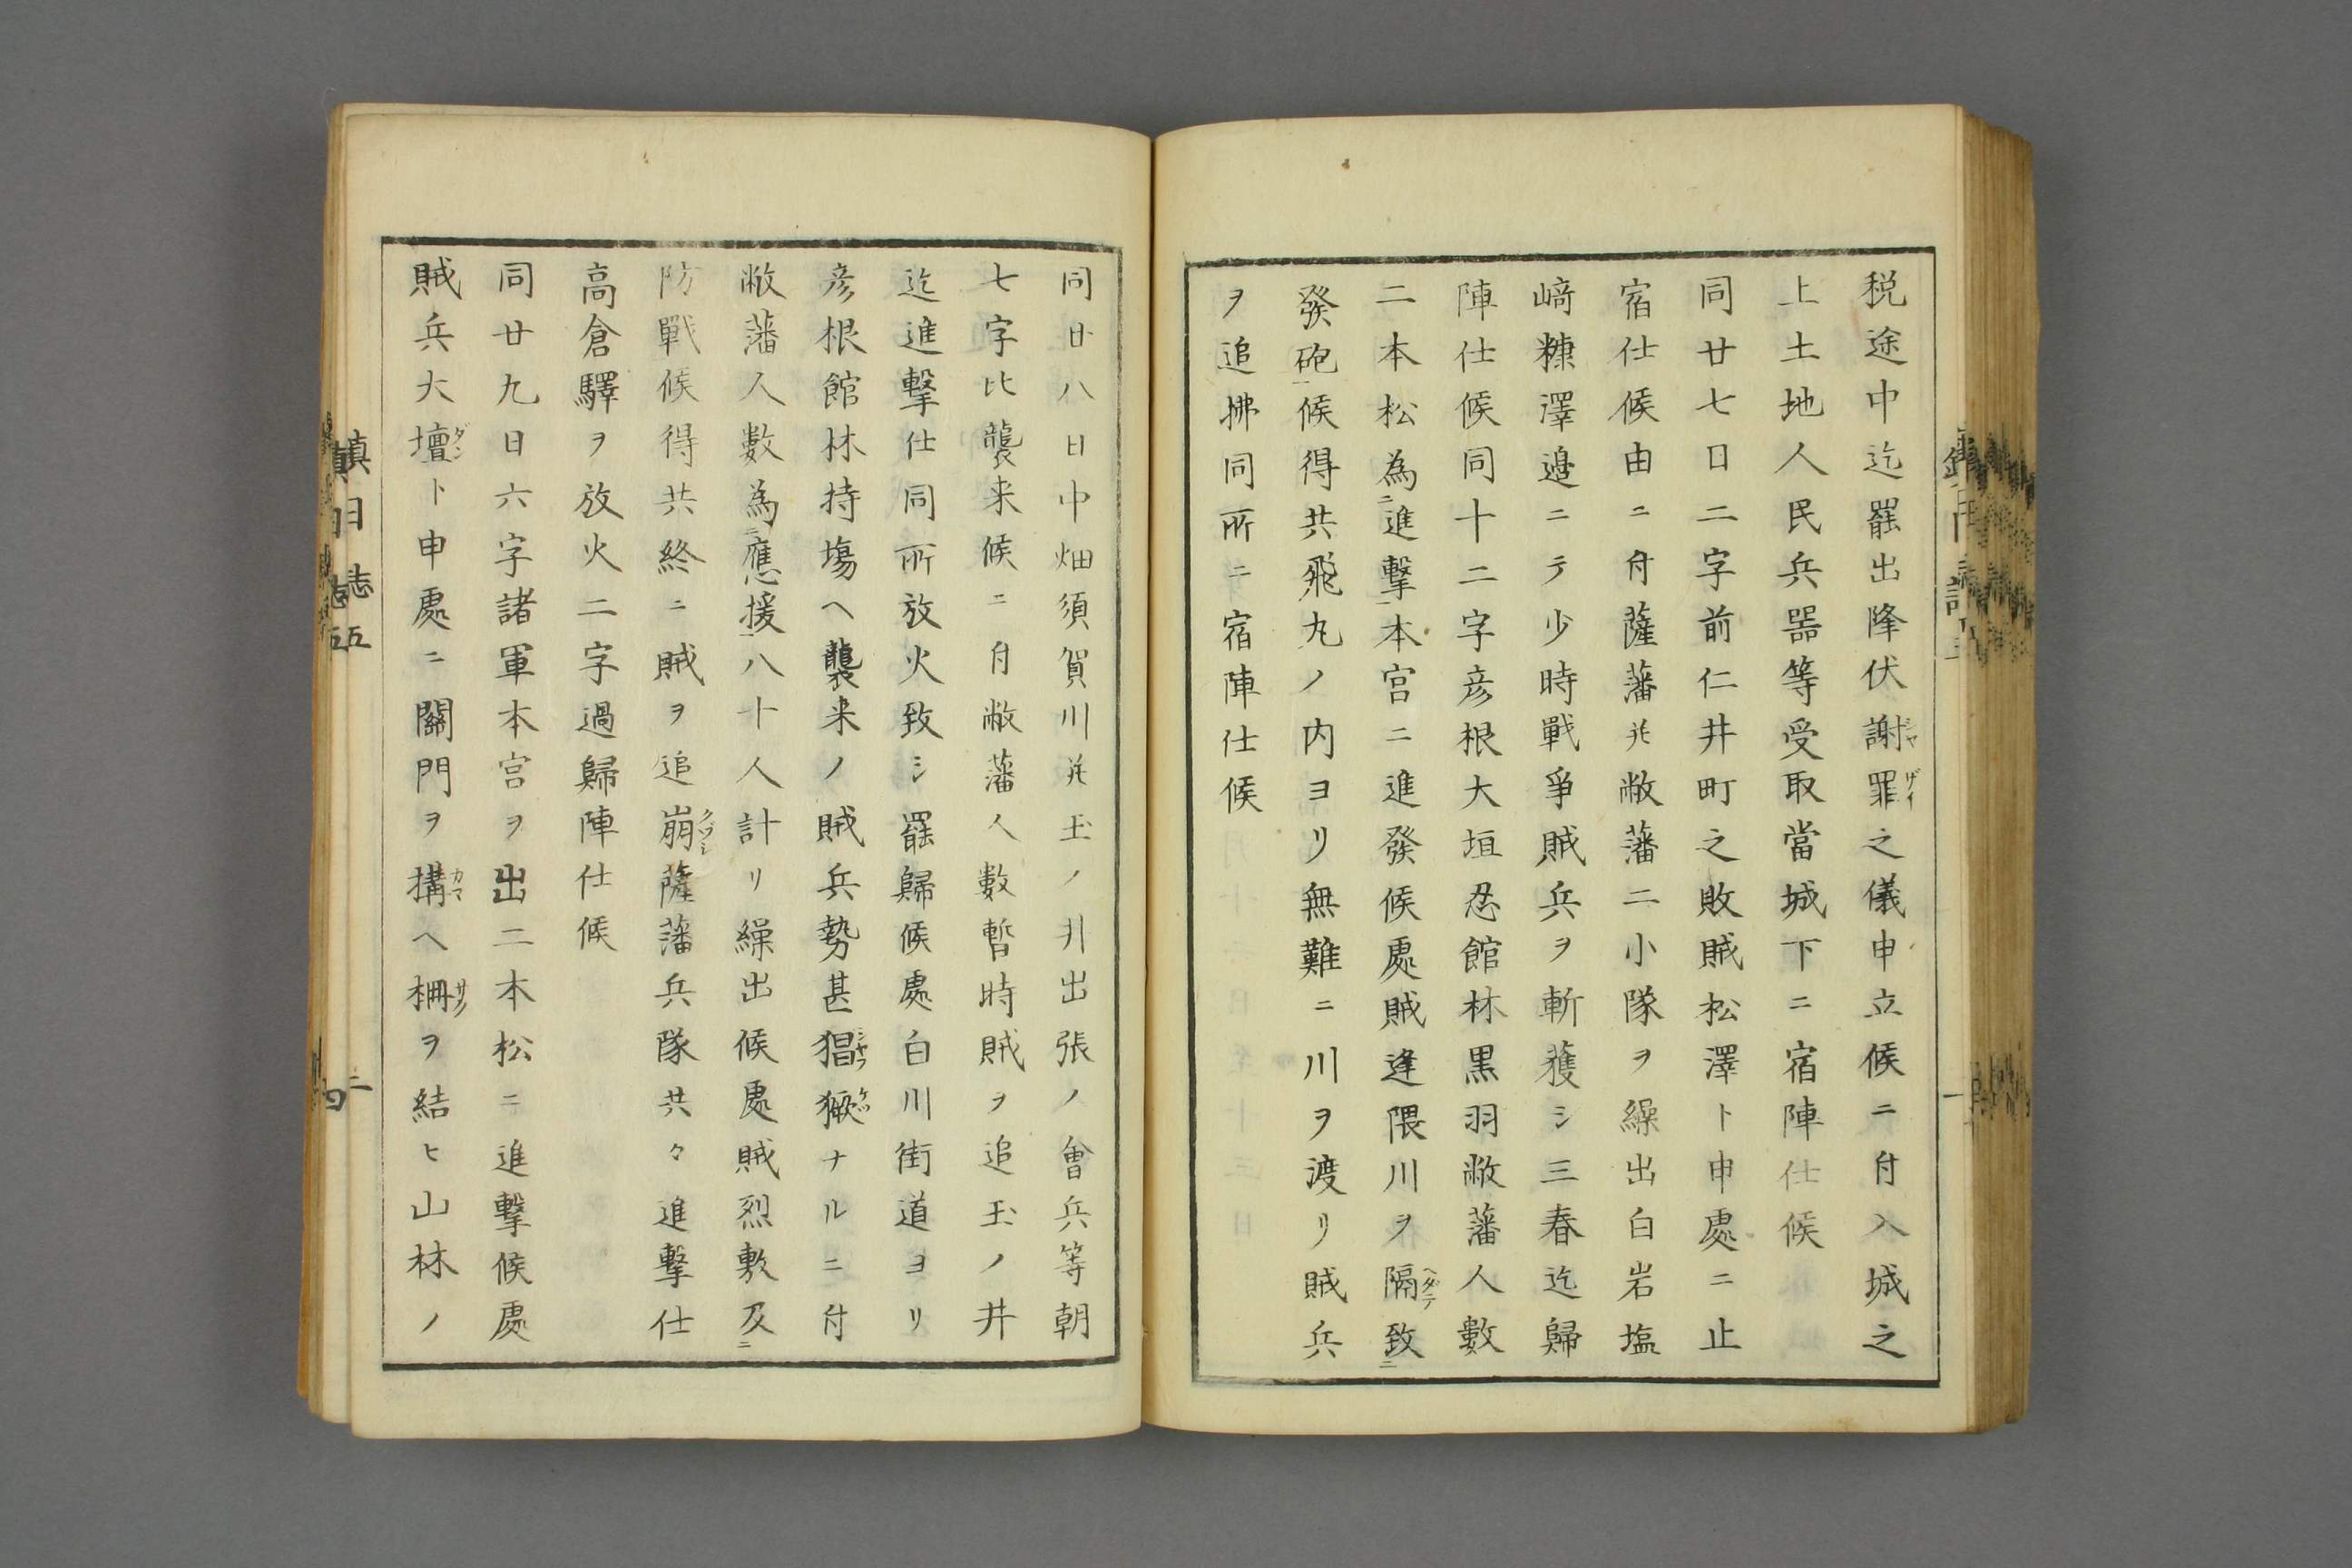 税途中迄罷出降伏謝罪之儀申立候ニ付入城之
上土地人民兵器等受取當城下ニ宿陣仕候
同廿七日二字前仁井町之敗賊松澤ト申處ニ止
宿仕候由ニ付薩藩幷敝藩二小隊ヲ繰出白岩塩
﨑糠澤邉ニテ少時戰爭賊兵ヲ斬獲シ三春迄歸
陣仕候同十二字彦根大垣忍館林黒羽敝藩人數
二本松為ニ進撃一本宮ニ進發候處賊逢隈川ヲ隔致ニ
發砲一候得共飛丸ノ内ヨリ無難ニ川ヲ渡リ賊兵
ヲ追拂同所ニ宿陣仕候
同廿八日中畑須賀川幷玉ノ井出張ノ會兵等朝
七字比襲来候ニ付敝藩人數暫時賊ヲ追玉ノ井
迄進撃仕同所放火致シ罷歸候處白川街道ヨリ
彦根館林持場ヘ襲来ノ賊兵勢甚猖獗ナルニ付
敝藩人數為ニ應援一八十人計リ繰出候處賊烈敷及ニ
防戰候得共終ニ賊ヲ追崩薩藩兵隊共々進撃仕
高倉驛ヲ放火二字過歸陣仕候
同廿九日六字諸軍本宮ヲ出二本松ニ進撃候處
賊兵大壇ト申處ニ關門ヲ搆ヘ柵ヲ結ヒ山林ノ
鎮日誌五